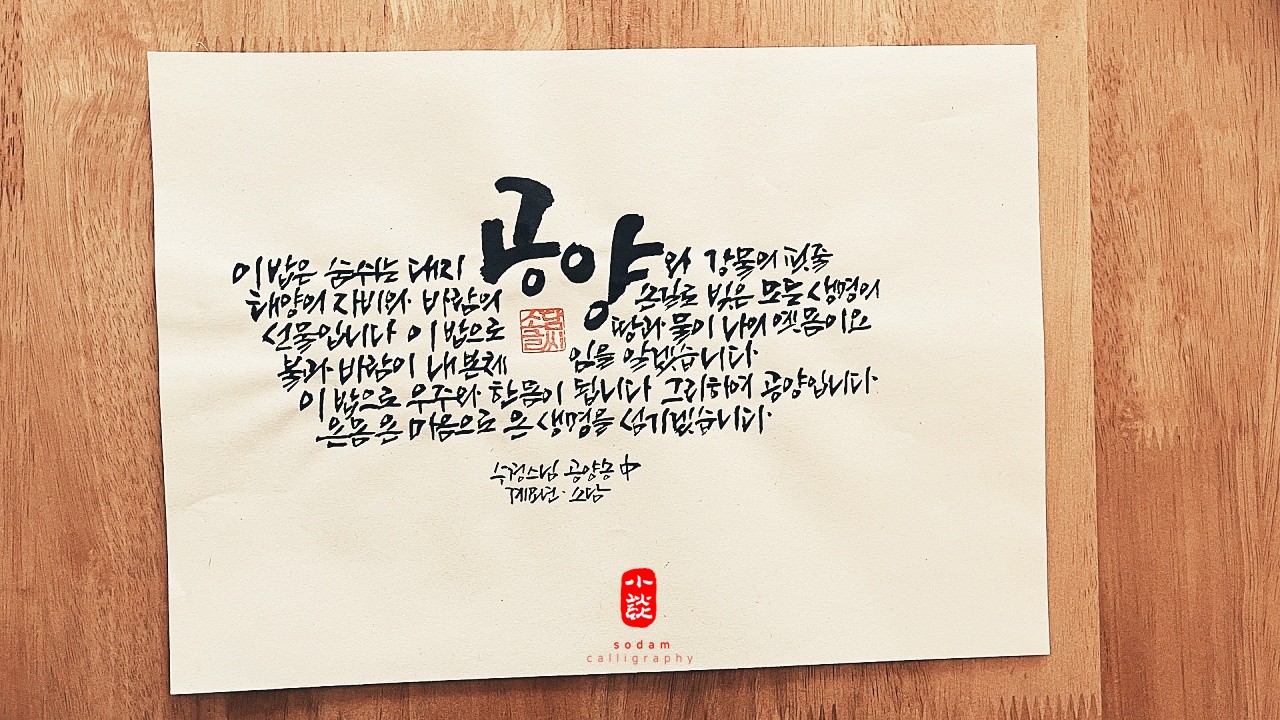 공양
이 밥은 숨쉬는 대지와 강물의 핏줄
태양의 자비와 바람의 손길로 빚은 모든 생명의
선물입니다 이 밥으로 땅과 물이 나의 옛몸이요
불과 바람이 내 본체임을 알겠습니다.
이 밥으로 우주와 한몸이 됩니다 그리하여 공양입니다.
온몸 온 마음으로 온 생명을 섬기겠습니다.
소담
글씨
수경스님 공양송 中
계묘년. 소담
小
談
sodam
calligraphy